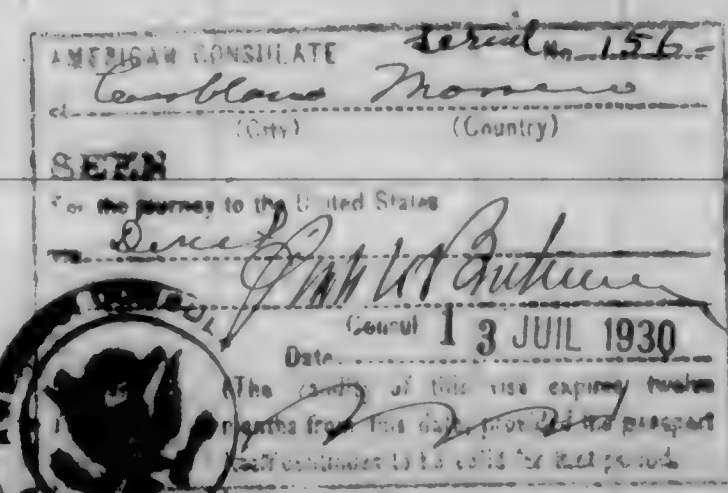 AMERICAN CONSULATE Serial No. 156
Casablanca Morocco
(City) (Country)
SEEN
For the journey to the United States
via Direct
Consul
Date 13 JUIL 1930
The validity of this visa expires twelve
months from this date, provided the passport
itself continues to be valid for that period.